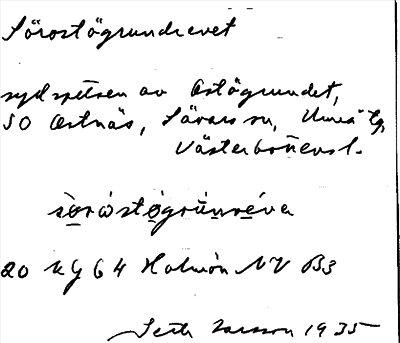 Sörostögrundrevet
sydspetsen av Ostögrundet,
SO Ostnäs, Sävars sn, Umeå tg,
Västerbottens l.
sörostögrunreva
20 K g 64 Holmön NV B3
Seth Larsson 1935